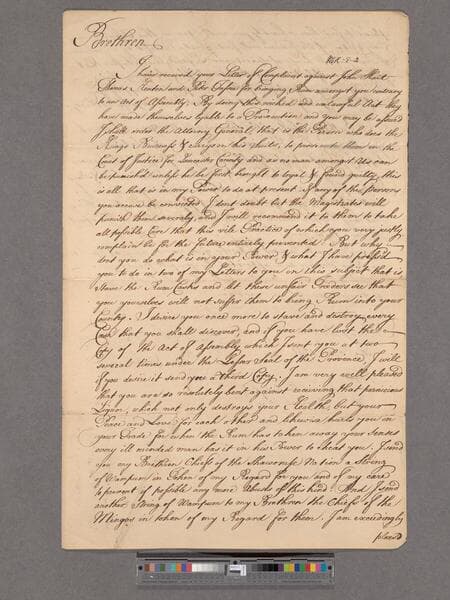 Brethren
I have received your Letter of Complaint against John Hart
Thomas Trenton and Peter Chofin for bringing Rum amongst you contrary
to our Act of Assembly. By doing this wicked and unlawful Act they
have made themselves lyable to a Prosecution and you may be assured
I shall order the Attorney General that is the Person who does the
Kings Business & carrys on his Suits, to prosecute them in the
Court of Justice for Lancaster County and as no man amongst us can
be punished unless he be first brought to tryal & found guilty, this
is all that is in my Power to do at present. If any of the Persons
you accuse be convicted I dont doubt but the Magistrates will
punish them severely, and I will recommend it to them to take
all possible Care that this vile Practice of which you very justly
complain be for the future entirely prevented. But why
dont you do what is in your Power & what I have pressed
you to do in two of my Letters to you on this subject that is
Stave the Rum Casks and let these unfair Traders see that
you yourselves will not suffer them to bring Rum into your
Country. I desire you once more to stave and destroy every
Cask that you shall discover, and if you have lost the
Copy of the Act of Assembly which I sent you at two
several times under the Lesser Seal of the Province I will
if you desire it send you a third Copy. I am very well pleased
that you are so resolutely bent against receiving that pernicious
Liquor, which not only destroys your Health, but your
Peace and Love for each other and likewise hurts you in
your Trade for when the Rum has taken away your Senses
every ill minded man has it in his Power to cheat you. I send
you my Brethren Chiefs of the Shawonese Nation a String
of Wampum in Token of my Regard for you and of my care
to prevent if possible any more Abuses of this kind. And I send
another String of Wampum to my Brethren the Chiefs of the
Mingos in token of my Regard for them. I am exceedingly
pleased